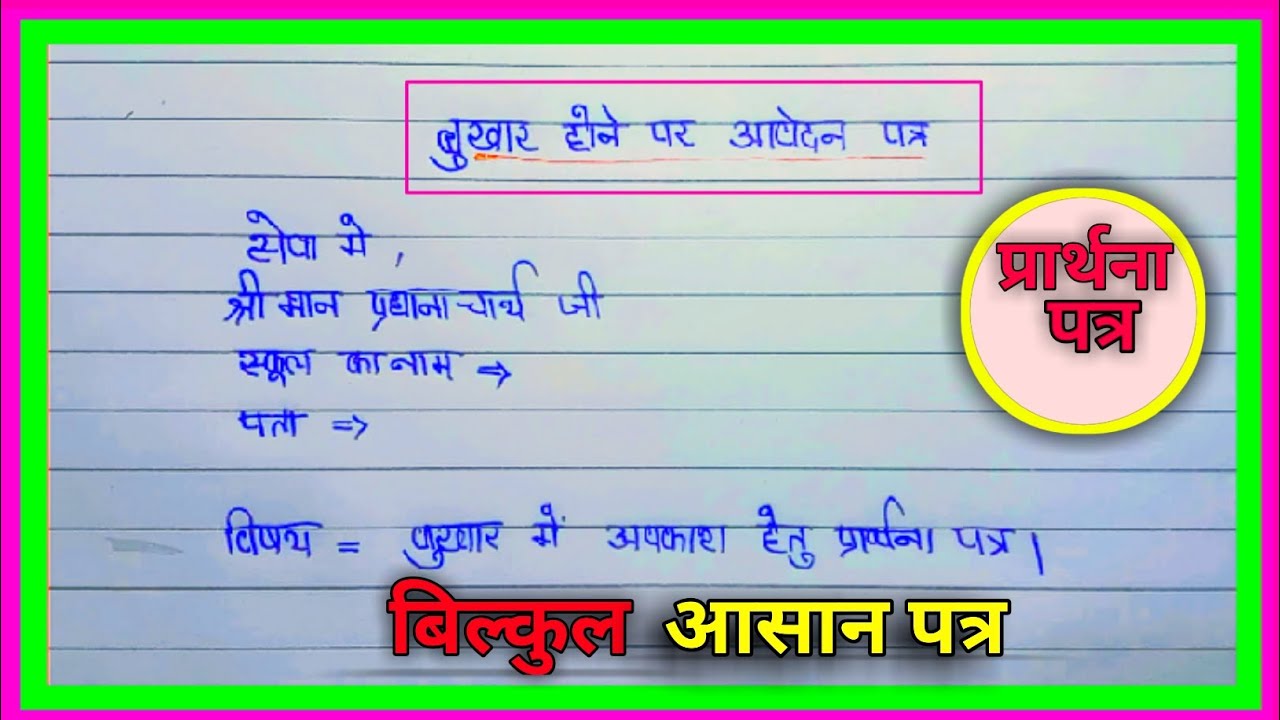 बुखार होने पर आवेदन पत्र
सेवा मे,
श्री मान प्रधानाचार्य जी
स्कूल का नाम ⇒
पता ⇒
विषय = बुखार में अवकाश हेतु प्रार्थना पत्र।
प्रार्थना
पत्र
बिल्कुल आसान पत्र